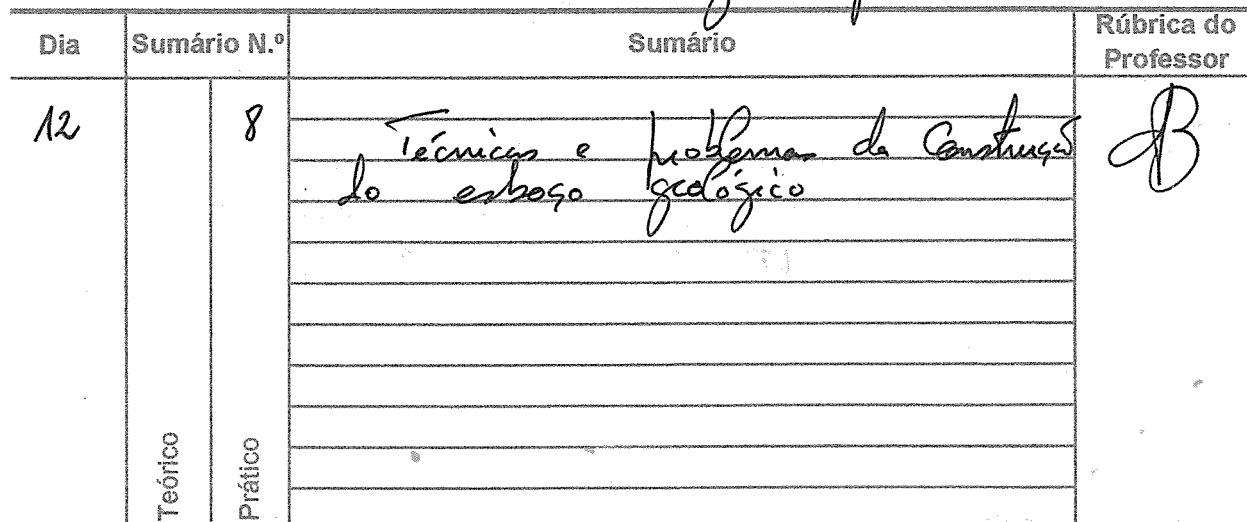 Dia Sumário N.º Sumário Rúbrica do Professor
12 8 Técnicas e problemas da Construção
do esboço geológico
Teórico Prático